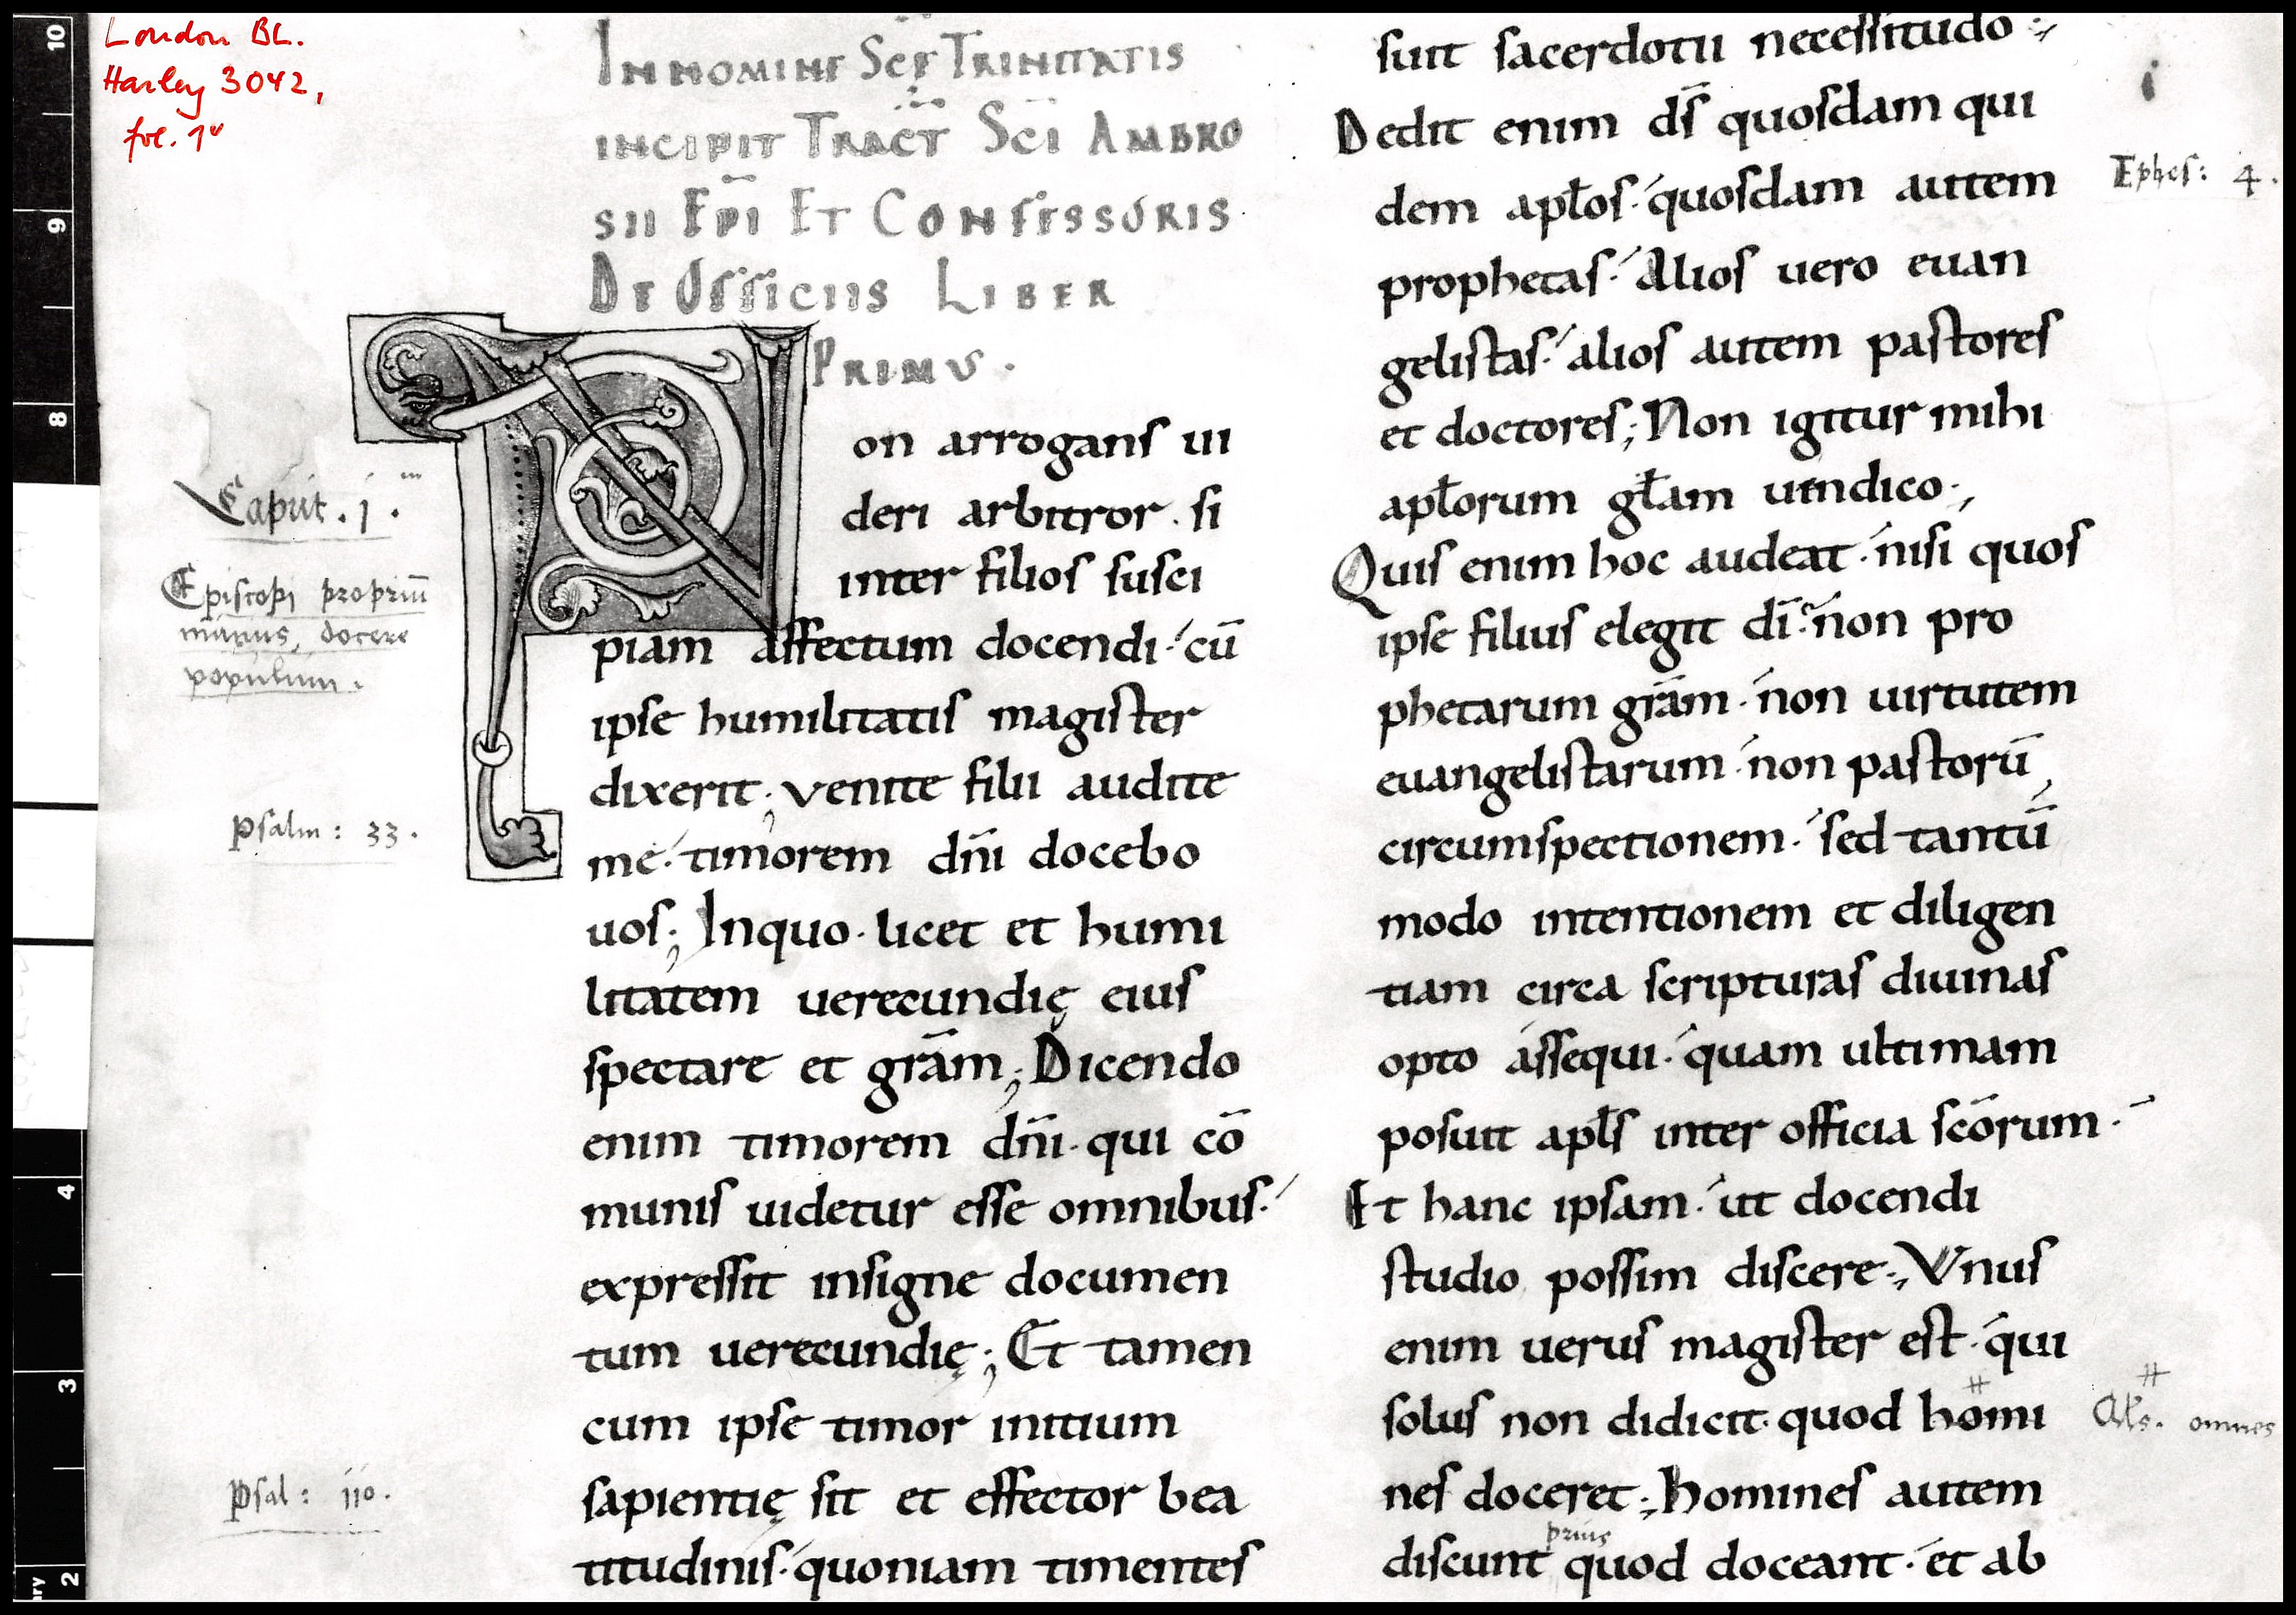 London BL.
Harley 3042,
fol. 1v
IN NOMINE SCE TRINITATIS
INCIPIT TRACT SCI AMBRO
SII EPI ET CONFESSORIS
DE OFFICIIS LIBER
PRIMUS.
Caput. j.
Episcopi propriū
munus, docere
populum.
Psalm: 33.
Psal: 110.
Non arrogans ui
deri arbitror. si
inter filios susci
piam affectum docendi. cū
ipse humilitatis magister
dixerit; venite filii audite
me. timorem dn̄i docebo
uos; Inquo. licet et humi
litatem uerecundię eius
spectare et grām; Dicendo
enim timorem dn̄i. qui cō
munis uidetur esse omnibus.
expressit insigne documen
tum uerecundię; Et tamen
cum ipse timor initium
sapientię sit et effector bea
titudinis. quoniam timentes
suit sacerdotii necessitudo;
Dedit enim ds̄ quosdam qui
dem apłos. quosdam autem
prophetas. Alios uero euan
gelistas. alios autem pastores
et doctores; Non igitur mihi
apłorum głam uindico;
Quis enim hoc audeat. nisi quos
ipse filius elegit dī. non pro
phetarum grām. non uirtutem
euangelistarum. non pastorū
circumspectionem. sed tantū
modo intentionem et diligen
tiam circa scripturas diuinas
opto assequi. quam ultimam
posuit apłs inter officia scōrum.
Et hanc ipsam. ut docendi
studio possim discere; Vnus
enim uerus magister est. qui
solus non didicit. quod homi
nes doceret; homines autem
prius
discunt quod doceant. et ab
Ephes: 4.
# Als. omnes
10
9
8
4
3
2